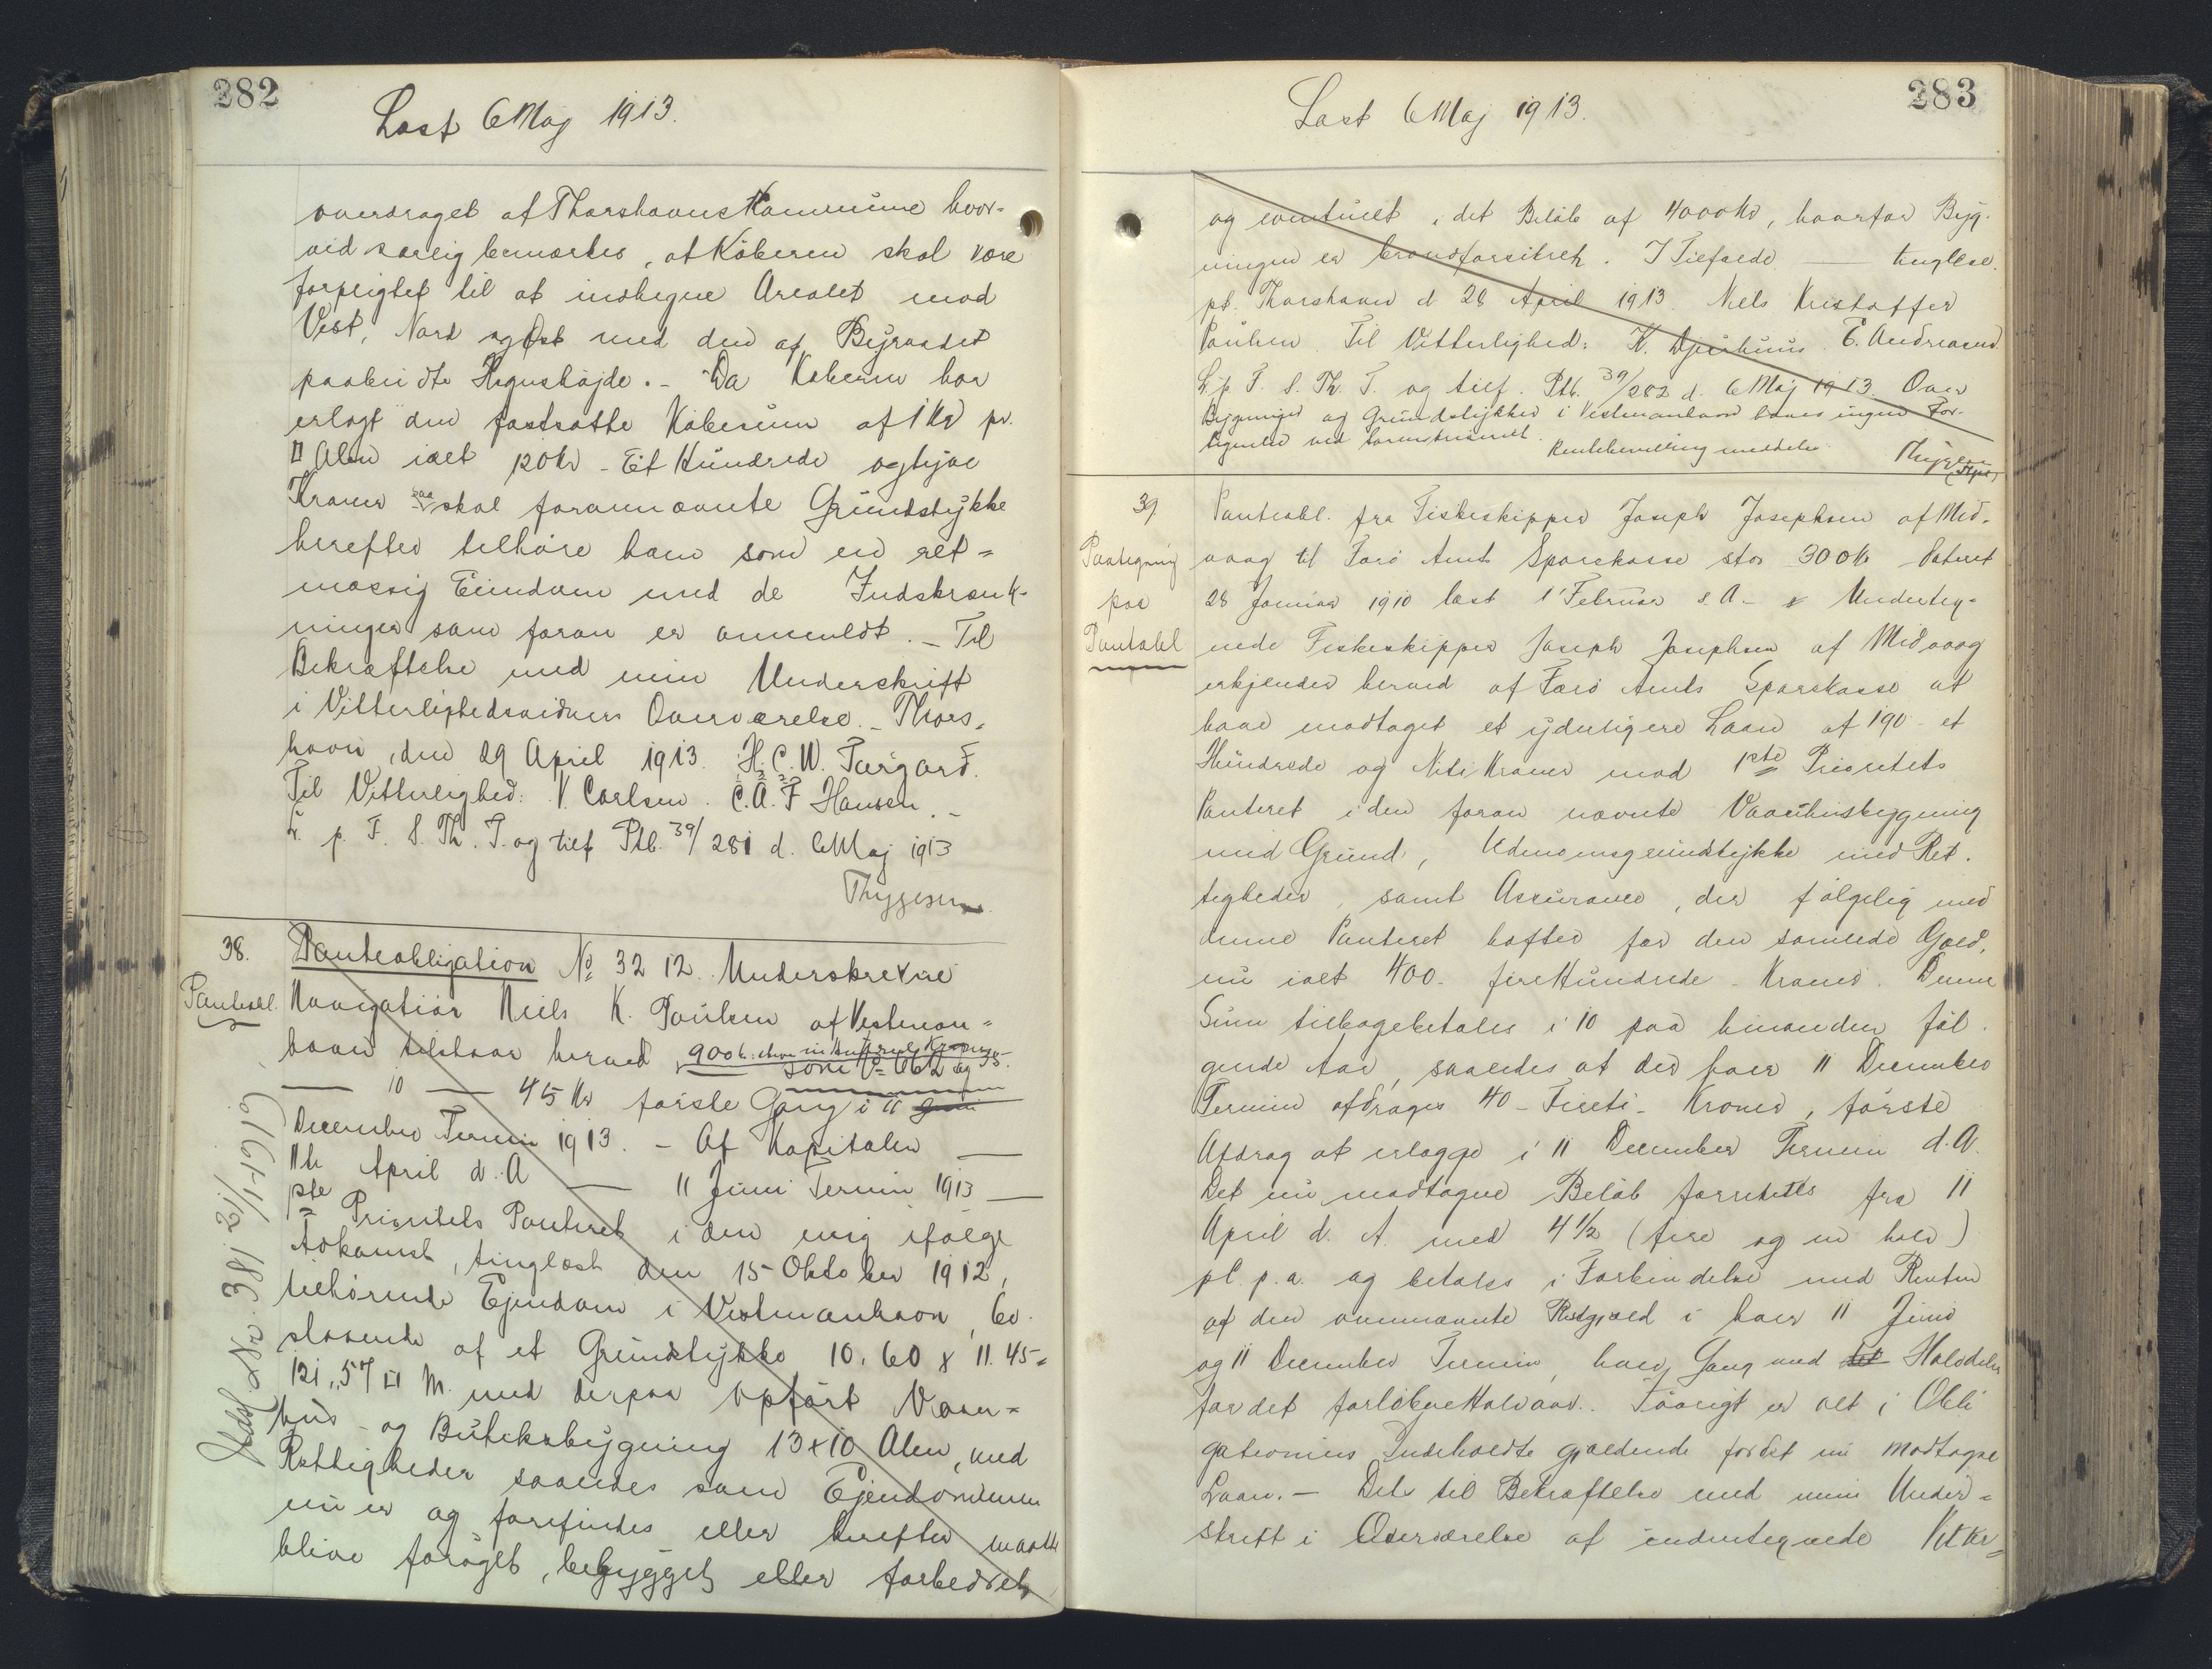 282
Læst 6 Maj 1913.
overdraget af Thorshavns Kommune hvor-
ved særlig bemærkes, at Köberen skal være
forpligtet til at indhegne Arealet mod
Vest, Nord og Øst med den af Byraadet
paabudte Hegnshøjde. - Da Køberen har
erlagt den fastsatte Købesum af 1 Kr pr.
□ Alen ialt 120 Kr - Et Hundrede og tyve
Kroner saa skal forannævnte Grundstykke
herefter tilhøre ham som en ret=
mæssig Eiendom med de Indskrænk-
ninger som foran er anmeldt. - Til
Bekræftelse med min Underskrift
i Vitterlighedsvidners Overværelse. - Thors-
havn, den 29 April 1913. H. C. W. Tørgard.
Til Vitterlighed: V Carlsen. C. A. F Hansen. -
L. p. F. S. Th. T. og tilf Ptb. 39/281 d. 6 Maj 1913
Thygesen
38. Panteobligation No 3212. Underskrevne
Panteobl. Navigatiör Niels K. Poulsen af Vestman=
havn tilstaar herved 900 k: skriver ni hundrede Kroner
som No 662 og 35.
— 10 — 45 Kr første Gang i 11
December Termin 1913. - Af Kapitalen —
11te April d. A — 11 Juni Termin 1913 —
1ste Prioritets Panteret i den mig ifølge
Adkomst, tinglæst den 15 Oktober 1912,
tilhørende Ejendom i Vestmanhavn, be-
staaende af et Grundstykke 10,60 x 11.45=
121,,57 □ M. med derpaa opført Vaan=
hus- og Butiksbygning 13x10 Alen, med
Rettigheder saaledes som Ejendommen
nu er og forefindes eller herefter maatte
blive forøget, bebygget eller forbedret
Udsl. d. Nr. 381 21/1-1919
283
Læst 6 Maj 1913.
og eventuelt i det Beløb af 4000 Kr, hvorfor Byg-
ningen er brandforsikret. I Tilfælde — tinglæse.
pt. Thorshavn d 28 April 1913. Niels Kristoffer
Poulsen. Til Vitterlighed: K. Djurhuus E. Andreasen.
L. p. F. S. Th. T. og tilf. Ptb. 39/282 d. 6 Maj 1913. Over
Bygninger og Grundstykker i Vestmanhavn haves ingen For-
tegnelse ved Sorenskriveriet.
Rentebevilling meddelt. Thygesen
39 Panteobl. fra Fiskeskipper Joseph Josephsen af Mid-
Paategning vaag til Færö Amts Sparekasse stor 300 Kr dateret
paa 28 Januar 1910 læst 1 Februar s. A. - Underteg-
Panteobl nede Fiskeskipper Joseph Josephsen af Midvaag
erkjender herved af Færö Amts Sparekasse at
have modtaget et yderligere Laan af 190 - et
Hundrede og Niti Kroner mod 1ste Prioritets
Panteret i den foran nævnte Vaanhusbygning
med Grund, Udmarksgrundstykke med Ret-
tigheder, samt Assurance, der følgelig med
denne Panteret hæfter for den samlede Gæld,
nu ialt 400 - fire Hundrede - Kroner. Denne
Sum tilbagebetales i 10 paa hinanden føl-
gende Aar, saaledes at der hver 11 December
Termin afdrages 40 - Fireti - Kroner, første
Afdrag at erlægge i 11 December Termin d. A.
Det nu modtagne Beløb forrentes fra 11
April d. A. med 4 1/2 (fire og en halv)
pt. p. a. og betales i Forbindelse med Renten
af den ovennævnte Restgjæld i hver 11 Juni
og 11 December Termin, hver Gang med Halvdelen
for det forløbne Halvaar. Iövrigt er alt i Obli
gationens Indeholdte gjældende for det nu modtagne
Laan. - Dets til Bekræftelse med min Under=
skrift i Overværelse af undertegnede Vitter=